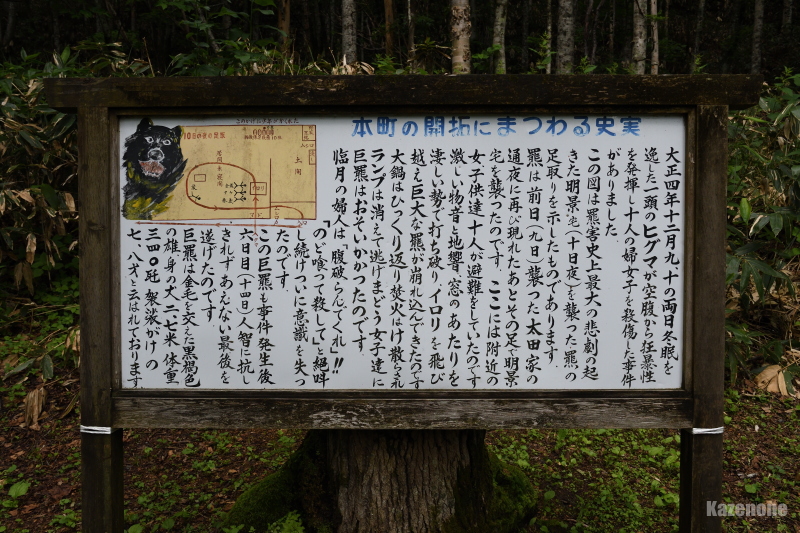 本町の開拓にまつわる史実
大正四年十二月九、十の両日冬眠を
逸した一頭のヒグマが空腹から狂暴性
を発揮し十人の婦女子を殺傷した事件
がありました
この図は羆害史上最大の悲劇の起
きた明景宅(十日夜)を襲った羆の
足取りを示したものであります。
羆は前日(九日)襲った太田家の
通夜に再び現れたあとその足で明景
宅を襲ったのです。ここには附近の
女子供達十人が避難をしていたのです
激しい物音と地響、窓のあたりを
凄しい勢で打ち破り、イロリを飛び
越え巨大な羆が崩れ込んできたのです
大鍋はひっくり返り焚火はけ散らされ
ランプは消えて逃げまどう女子達に
巨羆はおそいかかったのです。
臨月の婦人は「腹破らんでくれ」!!
「のど喰って殺して」と絶叫
し続けついに意識を失っ
たのです。
この巨羆も事件発生後
六日目(十四日)人智に抗し
きれずあえない最後を
遂げたのです
巨羆は金毛を交えた黒褐色
の雄身の丈二・七米 体重
三四〇瓩 袈裟がけの
七、八才と云はれております
土間
Kazenohe